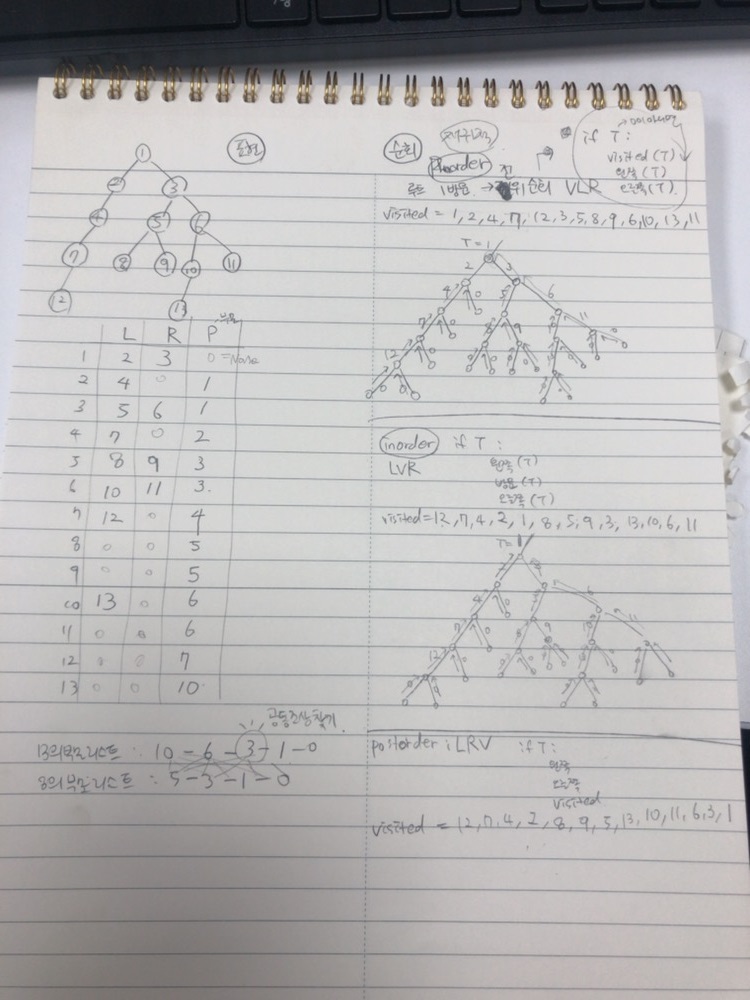 표현
1
2 3
4 5 6
7 8 9 10 11
12 13
L R P 부모
1 2 3 0 =None
2 4 0 1
3 5 6 1
4 7 0 2
5 8 9 3
6 10 11 3.
7 12 0 4
8 0 0 5
9 0 0 5
10 13 0 6
11 0 0 6
12 0 0 7
13 0 0 10
공통조상찾기
13의 부모리스트 : 10 - 6 - 3 - 1 - 0
8의 부모리스트 : 5 - 3 - 1 - 0
순회
preorder 전
루트 1방문 → 위순회 VLR
if T :
visited (T)
왼쪽 (T)
오른쪽 (T).
visited = 1, 2, 4, 7, 12, 3, 5, 8, 9, 6, 10, 13, 11
T = 1
2 3
4 5 6
7 11
12
inorder if T :
LVR 왼쪽 (T)
방문 (T)
오른쪽 (T)
visited = 12, 7, 4, 2, 1, 8, 5, 9, 3, 13, 10, 6, 11
T = 1
4 6
7 9 11
12
postorder : LRV if T :
왼쪽
오른쪽
visited
visited = 12, 7, 4, 2, 8, 9, 5, 13, 10, 11, 6, 3, 1